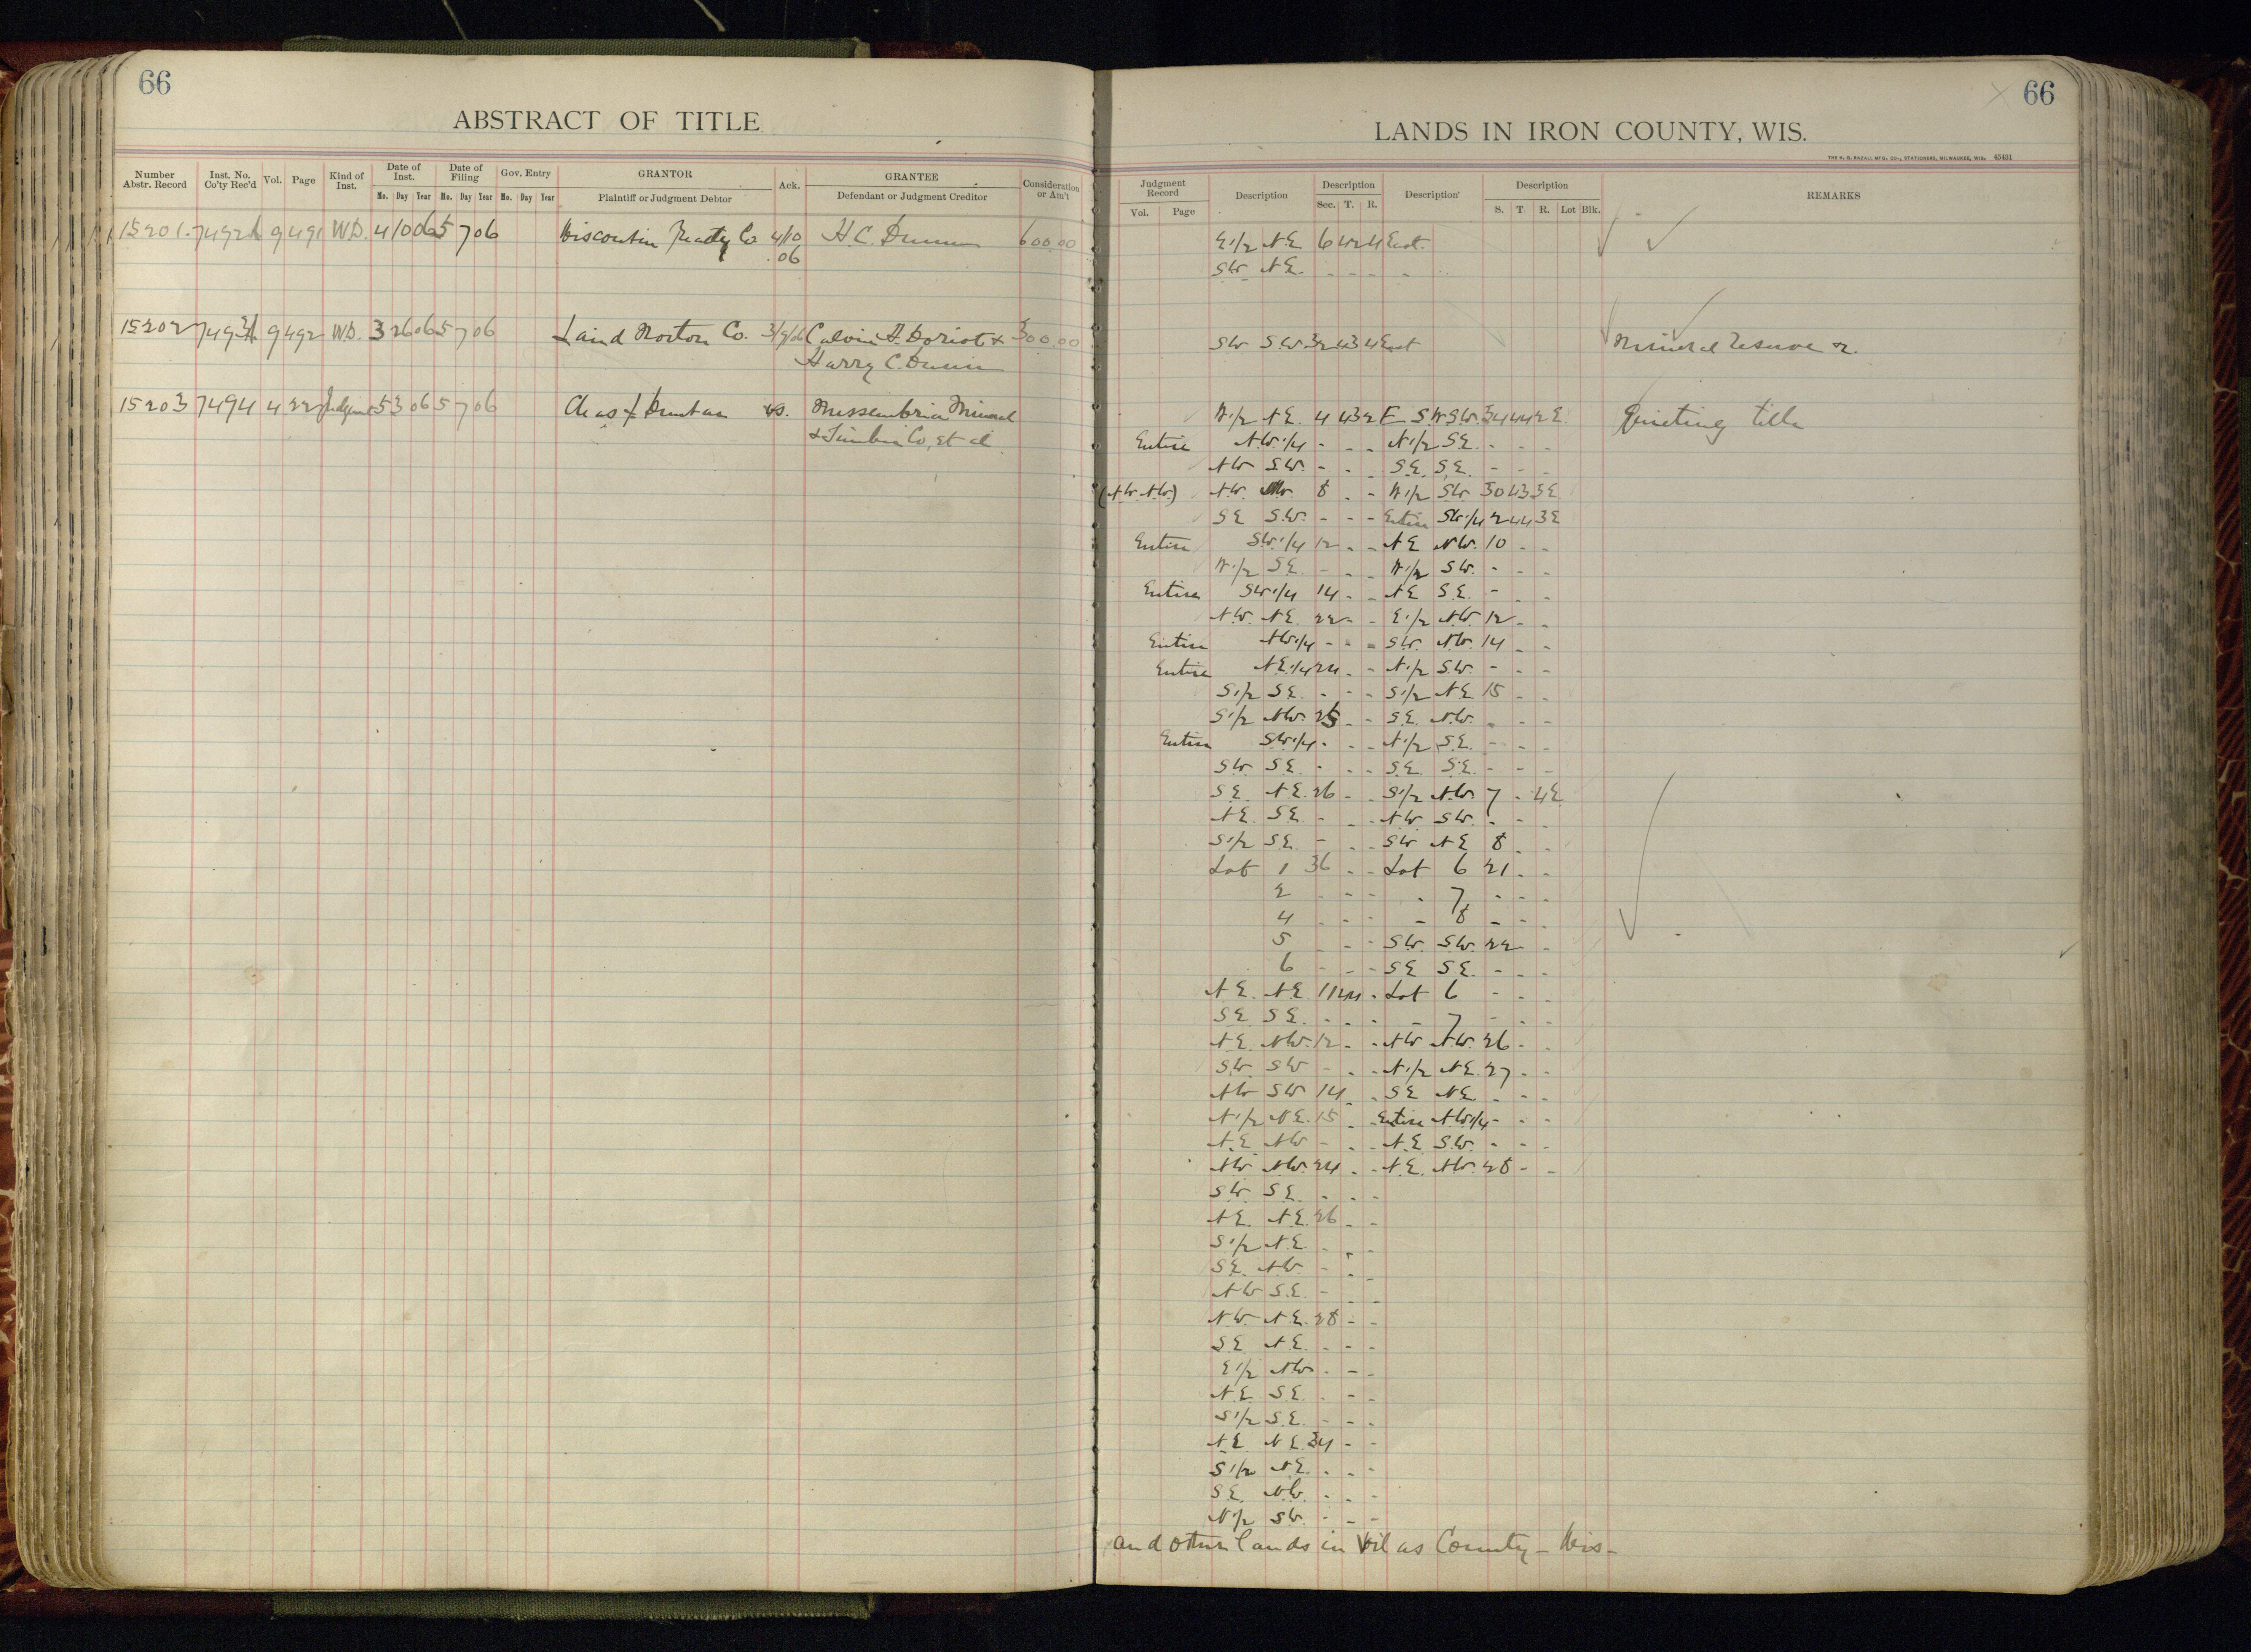 66
ABSTRACT OF TITLE
Number Abstr. Record Inst. No. Co'ty Rec'd Vol. Page Kind of Inst. Date of Inst. Date of Filing Gov. Entry GRANTOR Ack. GRANTEE Consideration or Am't
Mo. Day Year Mo. Day Year Mo. Day Year Plaintiff or Judgment Debtor Defendant or Judgment Creditor
15201 7492 9 491 W.D. 4 10 06 5 7 06 Wisconsin Realty Co 4/10 H.C. Dunn 600.00
06
15202 7493 9 492 W.D. 3 26 06 5 7 06 Laird Norton Co. Calvin A. Doriot & 300.00
Harry C. Dunn
15203 7494 4 Judgment 5 3 06 5 7 06 Chas vs. Mineral
& Co, et al
66
LANDS IN IRON COUNTY, WIS.
THE H. G. RAZALL MFG. CO., STATIONERS, MILWAUKEE, WIS. 45431
Judgment Record Description Description Description Description REMARKS
Vol. Page Sec. T. R. S. T. R. Lot Blk.
E1/2 NE 6 42 4 East
SW NE. - - - -
SW SW 32 43 4 East Mineral reserve
N1/2 NE. 4 43 2 E SW SW. 34 44 2 E. Quieting title
Entire NW1/4 - - - N1/2 SE. - - -
NW SW. - - - SE. SE. - - -
(NW. NW.) NW. 8 - - W1/2 SW 30 43 3 E
SE SW. - - - Entire SW1/4 2 44 3 E
Entire SW1/4 12 - - NE NW. 10 - -
W1/2 SE. - - - W1/2 SW. - - -
Entire SW1/4 14 - - NE SE. - - -
NW. NE. 22 - - E1/2 NW. 12 - -
Entire NW1/4 - - - SW. NW. 14 - -
Entire NE1/4 24 - - N1/2 SW. - - -
S1/2 SE. - - - S1/2 NE 15 - -
S1/2 NW. 25 - - SE. NW. - - -
Entire SW1/4 - - - N1/2 SE. - - -
SW SE. - - - SE. SE. - - -
SE. NE. 26 - - S1/2 NW. 7 - 4E
NE. SE. - - - NW SW. - - -
S1/2 SE. - - - SW NE 8 - -
Lot 1 36 - - Lot 6 21 - -
2 - - - - 7 - - -
4 - - - - 8 - - -
5 - - - SW. SW. 22 - -
6 - - - SE SE. - - -
NE. NE. 11 44 - Lot 6 - - -
SE SE. - - - - 7 - - -
NE. NW. 12 - - NW NW. 26 - -
SW. SW - - - N1/2 NE. 27 - -
NW SW 14 - - SE NE. - - -
N1/2 NE. 15 - Entire NW1/4 - - -
NE NW - - - NE SW. - - -
NW NW. 24 - - NE. NW. 28 - -
SW. SE. - - -
NE. NE. 26 - -
S1/2 NE. - - -
SE. NW. - - -
NW SE. - - -
NW. NE. 28 - -
SE NE. - - -
E1/2 NW. - - -
NE SE. - - -
S1/2 SE. - - -
NE NE. 34 - -
S1/2 NE. - - -
SE. NW. - - -
N1/2 SW. - - -
and other lands in Vilas County - Wis -